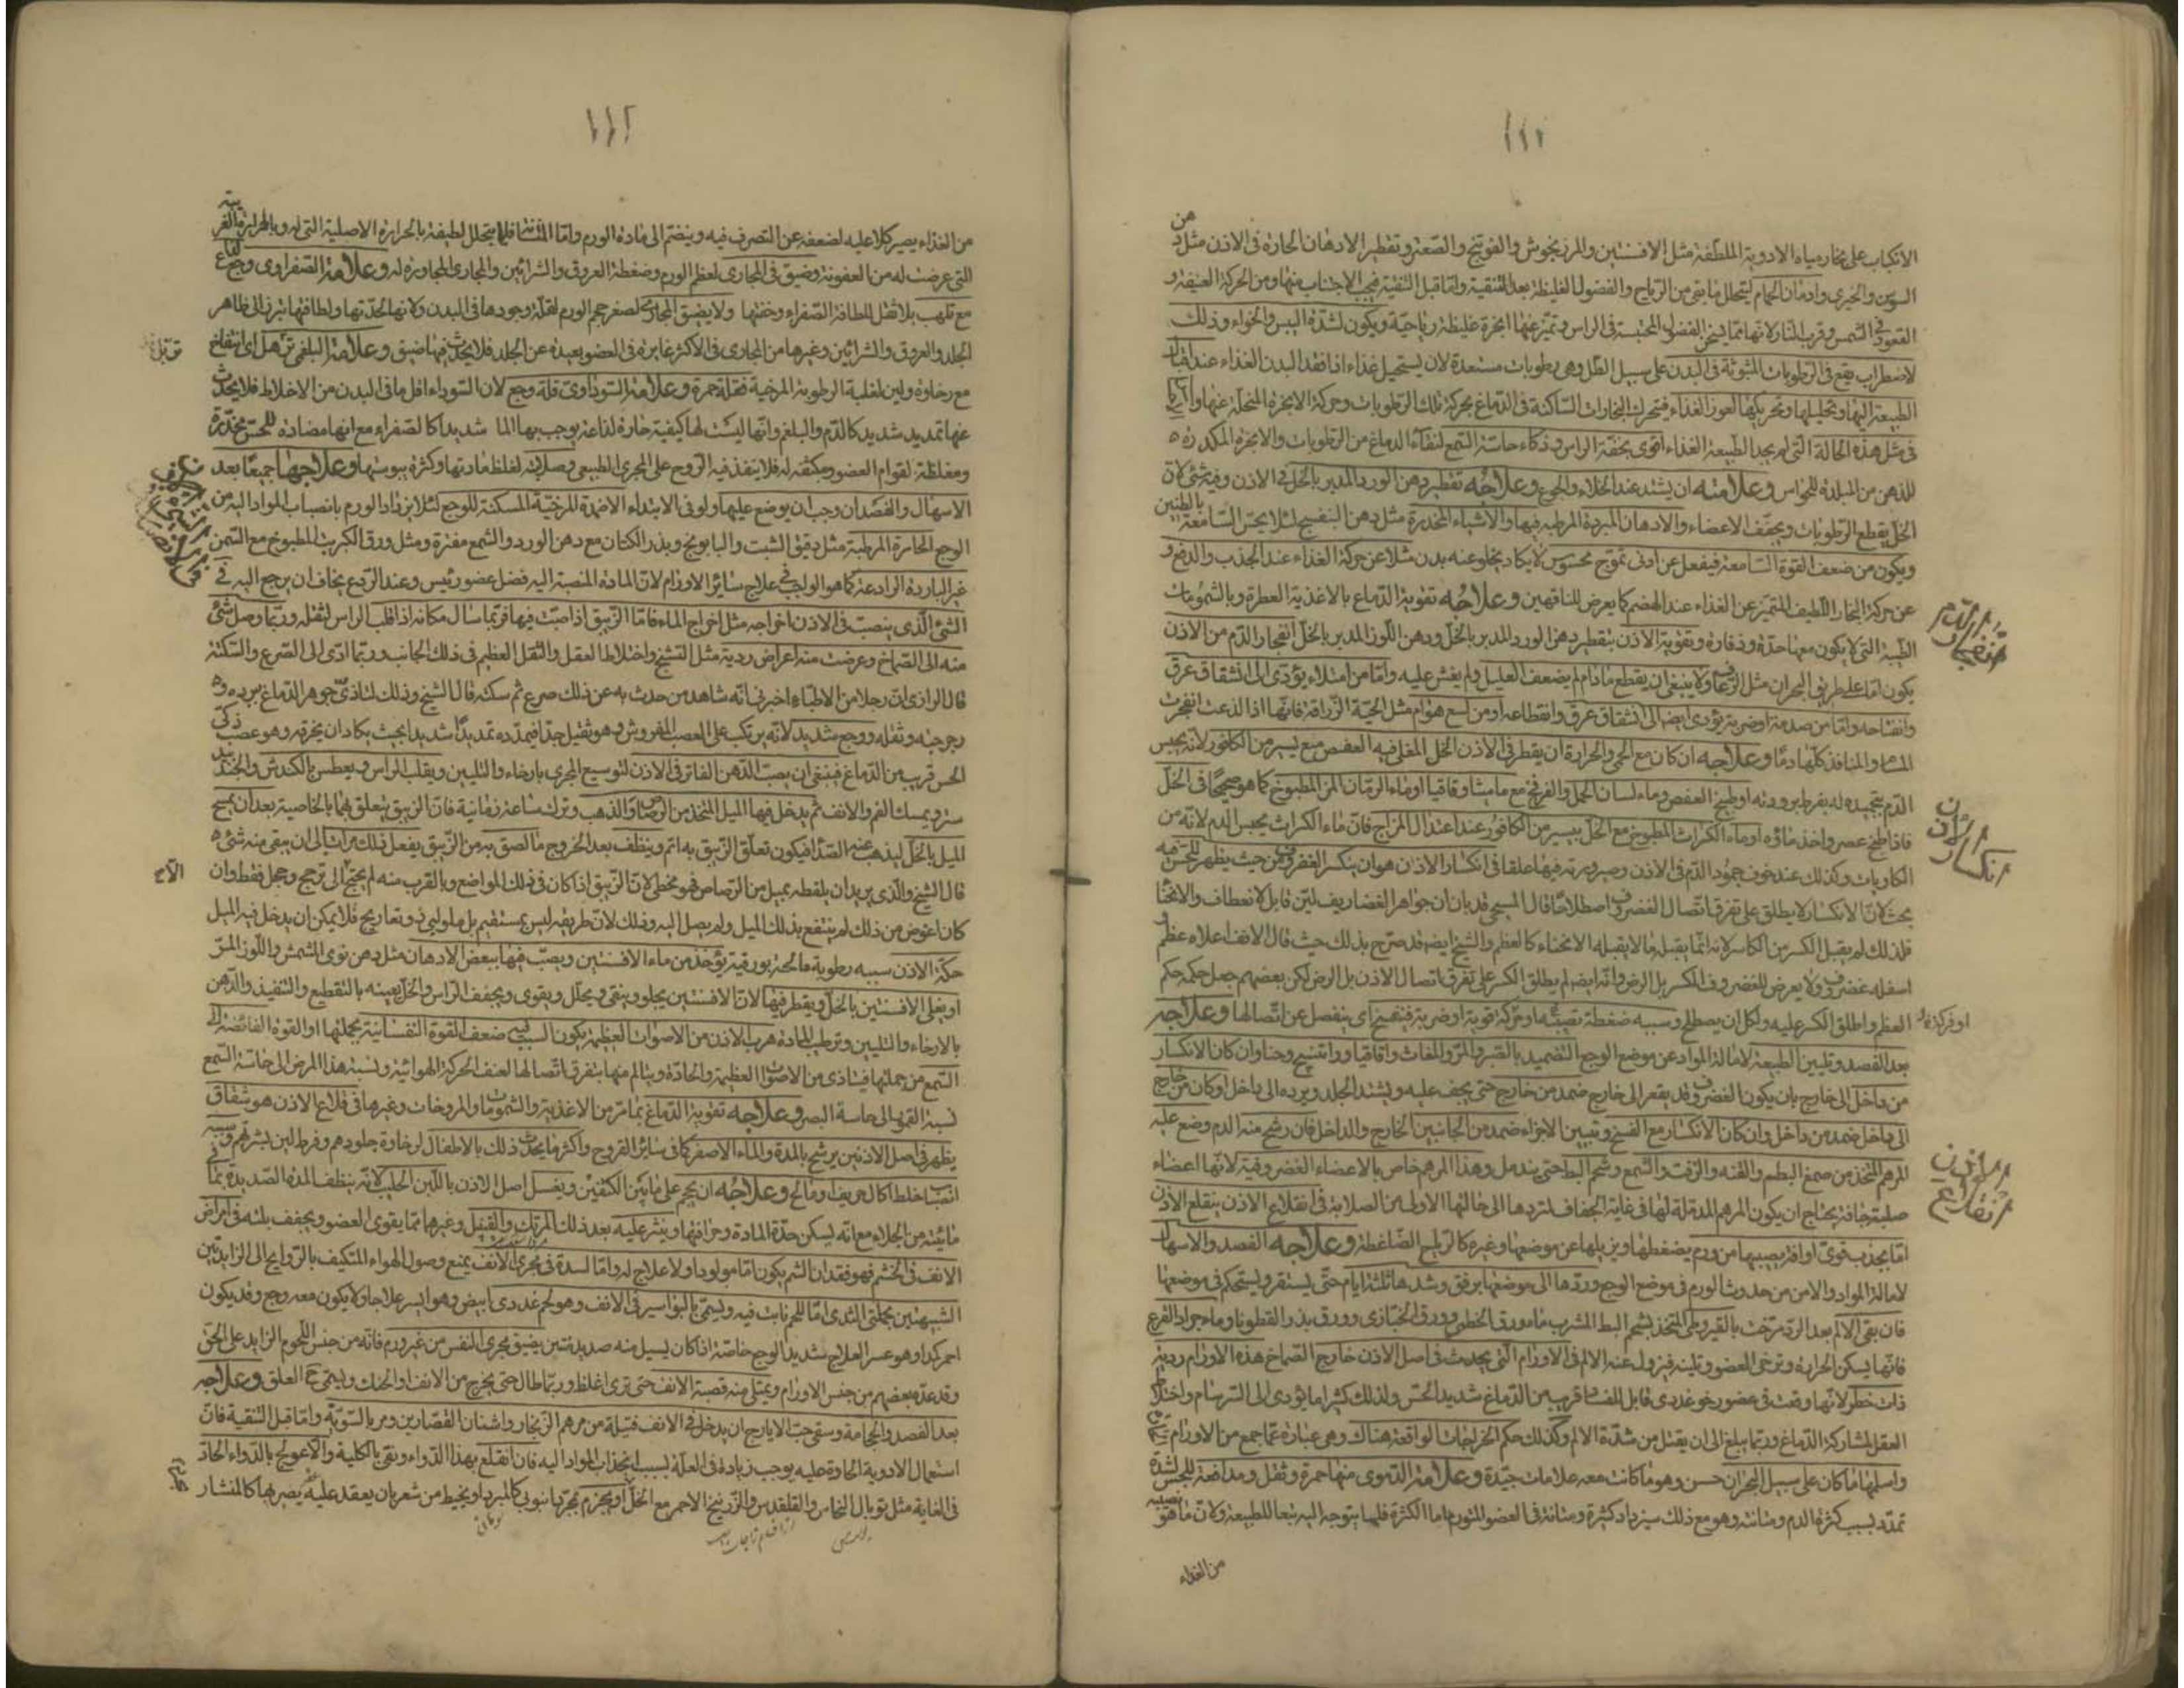 ١١١
الانكباب على بخار مياه الادوية الملطفة مثل الافسنتين والمرزنجوش والفوتنج والصعتر وتقطير الادهان الحارة فى الاذن مثل دهن
السوسن والخيرى وادمان الحمام ليتحلل ما بقى من الرياح والفضول الغليظة بعد التنقية واما قبل التنقية فيجب الاجتناب منها ومن الحركة العنيفة و
القعود فى الشمس وقرب النار لانها مما يسخن الفضول المحتبسة فى الراس وتميز عنها ابخرة غليظة رياحية ويكون لشدة اليبس والخواء وذلك
لاضطراب يقع فى الرطوبات المبثوثة فى البدن على سبيل الطل وهى رطوبات مستعدة لان يستحيل غذاء اذا فقد البدن الغذاء عند اقبال
الطبيعة اليها وتحليلها وتحريكها لعوز الغذاء فيتحرك البخارات الساكنة فى الدماغ بحركة تلك الرطوبات وحركة الابخرة المتحللة عنها
فى مثل هذه الحالة التى لم يجد الطبيعة الغذاء اقوى بخفة الراس وذكاء حاسة السمع لنقاء الدماغ من الرطوبات والابخرة المكدرة
للذهن من المبلدة للحواس وعلامته ان يشتد عند الخلاء والجوع وعلاجه تقطير دهن الورد المدبر بالخل فى الاذن وفيه شئ لان
الخل يقطع الرطوبات ويجفف الاعضاء والادهان المبردة المرطبة فيها والاشياء المخدرة مثل دهن البنفسج لئلا يحس السامعة بالطنين
ويكون من ضعف القوة السامعة فينفعل عن ادنى تموج محسوس لا يكاد يخلو عنه بدن مثلا عن حركة الغذاء عند الجذب والدفع و
عن حركة البخار اللطيف المتميز عن الغذاء عند الهضم كما يعرض للناقهين وعلاجه تقوية الدماغ بالاغذية العطرة وبالشمومات
الطيبة التى لا يكون معها حدة وذفارة وتقوية الاذن بتقطير دهن الورد المدبر بالخل ودهن اللوز المدبر بالخل انفجار الدم من الاذن
انفجار الدم
يكون اما على طريق البحران مثل الرعاف ولا ينبغى ان يقطع مادام لم يضعف العليل ولم يغش عليه واما من امتلاء يؤدى الى انشقاق عرق
وانفتاحه واما من صدمة او ضربة يؤدى ايضا الى انشقاق عرق وانقطاعه او من لسع هوام مثل الحية الزراقة فانها اذا لذعت انفجرت
المسام والمنافذ كلها دما وعلاجه ان كان مع الحمى والحرارة ان يقطر فى الاذن الخل المغلى فيه العفص مع يسير من الكافور لانه يحبس
الدم بتجميده له بفرط برودته او طبيخ العفص وماء لسان الحمل والفرفخ مع ماميثا وقاقيا او ماء الرمان المز المطبوخ كما هو صحيحا فى الخل
فاذا طبخ عصر واخذ ماؤه او ماء الكراث المطبوخ مع الخل بيسير من الكافور عند اعتدال المزاج فان ماء الكراث يحبس الدم لانه من
الكاويات وكذلك عند خوف جمود الدم فى الاذن وصيرورته فيها علقا فى انكسار الاذن هو ان ينكسر الغضروف من حيث يظهر للحس فيه
انكسار الاذن
بحث لان الانكسار لا يطلق على تفرق اتصال الغضروف اصطلاحا قال المسيحى قد بان ان جواهر الغضاريف لين قابل للانعطاف والانحناء
فلذلك لم يقبل الكسر من الكاسر لانه انما يقبله ما لا يقبله الانحناء كالعظم والشيخ ايضا قد صرح بذلك حيث قال الانف اعلاه عظم
اسفله غضروف ولا يعرض للغضروف الكسر بل الرض وانه ايضا لم يطلق الكسر على تفرق اتصال الاذن بل الرض لكن بعضهم جعل حكمه حكم
العظم واطلق الكسر عليه ولكل ان يصطلح وسببه ضغطة تصيبها او حركة قوية او ضربة فينفسخ اى ينفصل عن اتصالها وعلاجه
بعد الفصد وتليين الطبيعة لامالة المواد عن موضع الوجع التضميد بالصبر والمر والمغاث واقاقيا وراتينج وحنا وان كان الانكسار
من داخل الى خارج بان يكون الغضروف قد يقعر الى خارج ضمد من خارج حتى يجف عليه ويشتد الجلد ويرده الى داخل او كان من خارج
الى داخل ضمد من داخل وان كان الانكسار مع الفسخ وتبيين الاجزاء ضمد من الجانبين الخارج والداخل فان رشح منه الدم وضع عليه
المرهم المتخذ من صمغ البطم والقنه والزفت والشمع وشحم البط حتى يندمل وهذا المرهم خاص بالاعضاء الغضروفية لانها اعضاء
صلبة جافة يحتاج ان يكون المرهم المدملة لها فى غاية الجفاف لتردها الى حالتها الاولى من الصلابة فى انقلاع الاذن ينقلع الاذن
انقلاع الاذن
اما بجذب قوى او افة يصيبها من ورم يضغطها ويزيلها عن موضعها وغيره كالريح الضاغطة وعلاجه الفصد والاسهال
لامالة المواد والامن من حدوث الورم فى موضع الوجع وردها الى موضعها برفق وشدها ثلثة ايام حتى يستقر ويستحكم فى موضعها
فان بقى الالم بعد الرد مرخت بالقيروطى المتخذ بشحم البط المشرب ماء ورق الخطمى وورق الخبازى وورق بذر القطونا وماء جرادة القرع
فانها يسكن الحرارة وترخى العضو وتلينه فيزول عنه الالم فى الاورام التى يحدث فى اصل الاذن خارج الصماخ هذه الاورام ردية
ذات خطر لانها وقعت فى عضو رخو غددى قابل للفساد قريب من الدماغ شديد الحس ولذلك كثيرا ما يؤدى الى السرسام واختلاط
العقل لمشاركة الدماغ وربما يبلغ الى ان يقتل من شدة الالم وكذلك حكم الخراجات الواقعة هناك وهى عبارة عما جمع من الاورام
واسلمها ما كان على سبيل البحران حسن وهو ما كانت معه علامات جيدة وعلامة الدموى منها حمرة وثقل ومدافعة للجس لشدة
تمدد بسبب كثرة الدم ومتانته وهو مع ذلك سيزداد كثرة ومتانة فى العضو المتورم اما الكثرة فلما يتوجه اليه تبعا للطبيعة ولان ما هو نصيبه
من الغذاء
١١٢
من الغذاء يصير كلا عليه لضعفه عن التصرف فيه وينضم الى مادة الورم واما المتانة فلما يتحلل لطيفه بالحرارة الاصلية التى له وبالحرارة الغريبة
التى عرضت له من العفونة وضيق فى المجارى لعظم الورم وضغطه العروق والشرائين والمجارى المجاورة له وعلامة الصفراوى وجع
مع تلهب بلا ثقل للطافة الصفراء وخفتها ولا يضيق المجارى لصغر حجم الورم لقلة وجودها فى البدن ولانها لحدتها ولطافتها تبرز الى ظاهر
الجلد والعروق والشرائين وغيرها من المجارى فى الاكثر غايرة فى العضو بعيدة عن الجلد فلا يحدث فيها ضيق وعلامة البلغمى ترهل اى انتفاخ
مع رخاوة ولين لغلبة الرطوبة المرخية فقلة حمرة وعلامة السوداوى قلة وجع لان السوداء اقل ما فى البدن من الاخلاط فلا يحدث
عنها تمديد شديد كالدم والبلغم وانها ليست لها كيفية حارة لذاعة يوجب بها الما شديدا كالصفراء مع انها مضادة للحس مخدرة
ومغلظة لقوام العضو ومكثفة له فلا ينفذ فيه الروح على المجرى الطبيعى وصلابة لغلظ مادتها وكثرة يبوستها وعلاجها جميعا بعد
الاسهال والفصد ان وجب ان يوضع عليها ولو فى الابتداء الاضمدة المرخية المسكنة للوجع لئلا يزداد الورم بانصباب المواد اليه من
الوجع الحارة المرطبة مثل دقيق الشبت والبابونج وبذر الكتان مع دهن الورد والشمع مفترة ومثل ورق الكرنب المطبوخ مع السمن
غير الباردة الرادعة كما هو الواجب فى علاج سائر الاورام لان المادة المنصبة اليه فضل عضو رئيس وعند الردع يخاف ان يرجع اليه فى
الشئ الذى ينصب فى الاذن اخراجه مثل اخراج الماء فاما الزيبق اذا صبت فيها فربما سال مكانه اذا قلب الراس لثقله وربما وصل شئ
منه الى الصماخ وعرضت منه اعراض ردية مثل التشنج واختلاط العقل والثقل العظيم فى ذلك الجانب وربما ادى الى الصرع والسكتة
قال الرازى ان رجلا من الاطباء اخبرنى انه شاهد من حدث به عن ذلك صرع ثم سكتة قال الشيخ وذلك لتاذى جوهر الدماغ ببرده و
رجرجته وثقله ووجع شديد لانه يرتكب على العصب المفروش وهو ثقيل جدا فيمدده تمديدا شديدا بحيث يكاد ان يخرقه وهو عصب ذكى
الحس قريب من الدماغ فينبغى ان يصب الدهن الفاتر فى الاذن لتوسيع المجرى بارخاء والتليين ويقلب الراس ويعطس بالكندش والجندبيد
ستر ويمسك الفم والانف ثم يدخل فيها الميل المتخذ من الرصاص او الذهب وترك ساعة زمانية فان الزيبق يتعلق بهما بالخاصية بعد ان يمسح
الميل بالخل ليذهب عنه الصدأ فيكون تعلق الزيبق به اتم وينظف بعد الخروج ما لصق به من الزيبق يفعل ذلك مرات الى ان يبقى منه شئ
قال الشيخ والذى يريد ان يلقطه بميل من الرصاص فهو مخطى لان الزيبق اذا كان فى ذلك المواضع وبالقرب منه لم يحتج الى ترجح وحجل فقط وان
كان اغوص من ذلك لم ينتفع بذلك الميل ولم يصل اليه وذلك لان طريقه ليس بمستقيم بل ملولبى ذو تعاريج فلا يمكن ان يدخل فيه الميل
حكة الاذن سببه رطوبة مالحة بورقية يؤخذ من ماء الافسنتين ويصب فيها ببعض الادهان مثل دهن نوى المشمش واللوز المر
او يغلى الافسنتين بالخل ويقطر فيها لان الافسنتين يجلو وينقى ويحلل ويقوى ويجفف الراس والخل يعينه بالتقطيع والتنفيذ والدهن
بالارخاء والتليين وترطيب المادة هرب الاذن من الاصوات العظيمة يكون السبب ضعف القوة النفسانية بجملتها او القوة الفائضة الى
السمع من جملتها فيتاذى من الاصوات العظيمة والحادة ويتالم منها بتفرق اتصالها لعنف الحركة الهوائية ونسبة هذا المرض الى حاسة السمع
نسبة القمور الى حاسة البصر وعلاجه تقوية الدماغ بما مر من الاغذية والشمومات والمروخات وغيرها فى قلاع الاذن هو شقاق
يظهر فى اصل الاذنين يرشح بالمدة والماء الاصفر كما فى سائر القروح واكثر ما يحدث ذلك بالاطفال لرخاوة جلودهم وفرط لين بشرتهم وسببه
انصباب خلط اكال حريف ومالح وعلاجه ان يحجم على ما بين الكتفين ويغسل اصل الاذن باللبن الحليب لانه ينظف المدة الصديدية بما
فيه من الجلاء مع انه يسكن حدة المادة وحرافتها وينثر عليه بعد ذلك المرتك والقنبيل وغيرهما مما يقوى العضو ويجفف بلته فى امراض
الانف فى الخشم فهو فقدان الشم يكون اما مولودا ولا علاج له واما لسدة فى مجرى الانف يمنع وصول الهواء المتكيف بالروايح الى الزايدتين
الشبيهتين بحلمتى الثدى اما للحم نابت فيه ويسمى بالبواسير فى الانف وهو لحم غددى ابيض وهو ايسر علاجا ولا يكون معه وجع وقد يكون
احمر كمدا وهو عسر العلاج شديد الوجع خاصة اذا كان يسيل منه صديد منتن يضيق مجرى النفس من غير ورم فانه من جنس اللحوم الزايد على الحق
وقد عده بعضهم من جنس الاورام ويمتلى منه قصبة الانف حتى ترى اغلظ وربما طال حتى يخرج من الانف او الحنك ويسمى العلق وعلاجه
بعد الفصد والحجامة وسقى حب الايارج ان يدخل فى الانف فتيلة من مرهم الزنجار واشنان القصارين ومر بالسوية واما قبل التنقية فان
استعمال الادوية الحادة عليه يوجب زيادة فى العلة بسبب انجذاب المواد اليه فان انقلع بهذا الدواء ونقى بالكلية والا عولج بالدواء الحاد
فى الغاية مثل توبال النحاس والقلقديس والزرنيخ الاحمر مع الخل او يجزم بمجرد انبوبى كالمبرد او بخيط من شعر بان يعقد عليه يصيرها كالمنشار